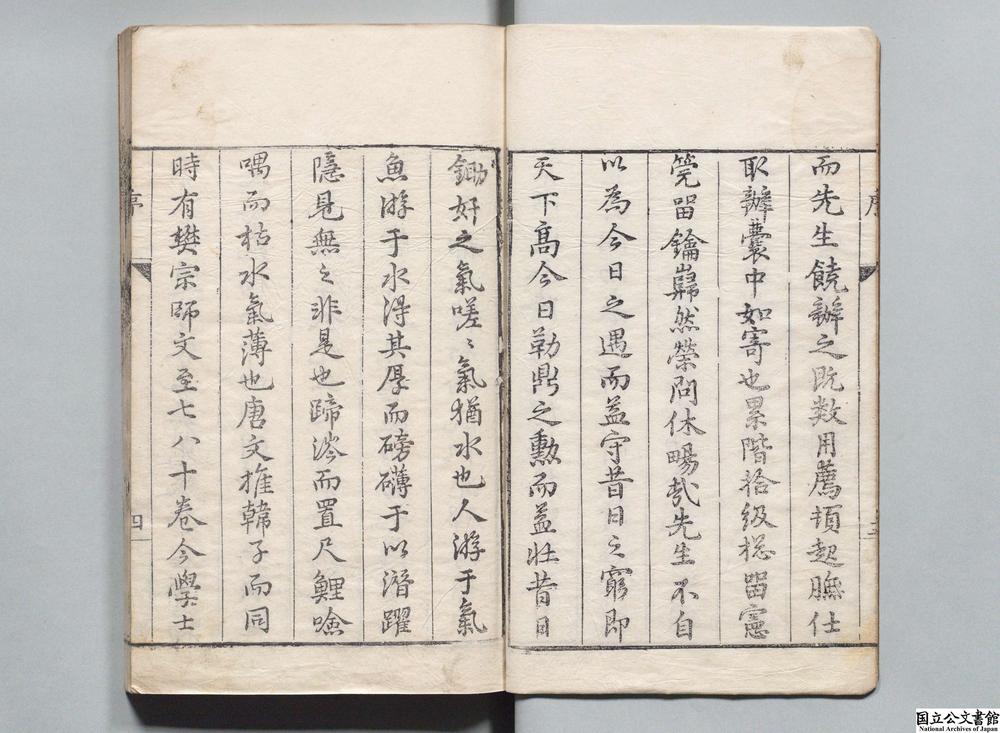 而先生饒辦之既数用薦頓起膴仕
取辦囊中如寄也累階拾級棇畱憲
筦畱鑰巋然榮問休暢哉先生不自
以為今日之遇而益守昔日之窮即
天下髙今日勒鼎之勲而益壮昔日
鋤奸之氣嗟〻氣猶水也人游于氣
魚游于水淂其厚而磅礴于以潛躍
隱見無之非是也蹄涔而置尺鯉噞
喁而枯水氣薄也唐文推韓子而同
時有樊宗師文至七八十卷今學士
序
四
国立公文書館
National Archives of Japan